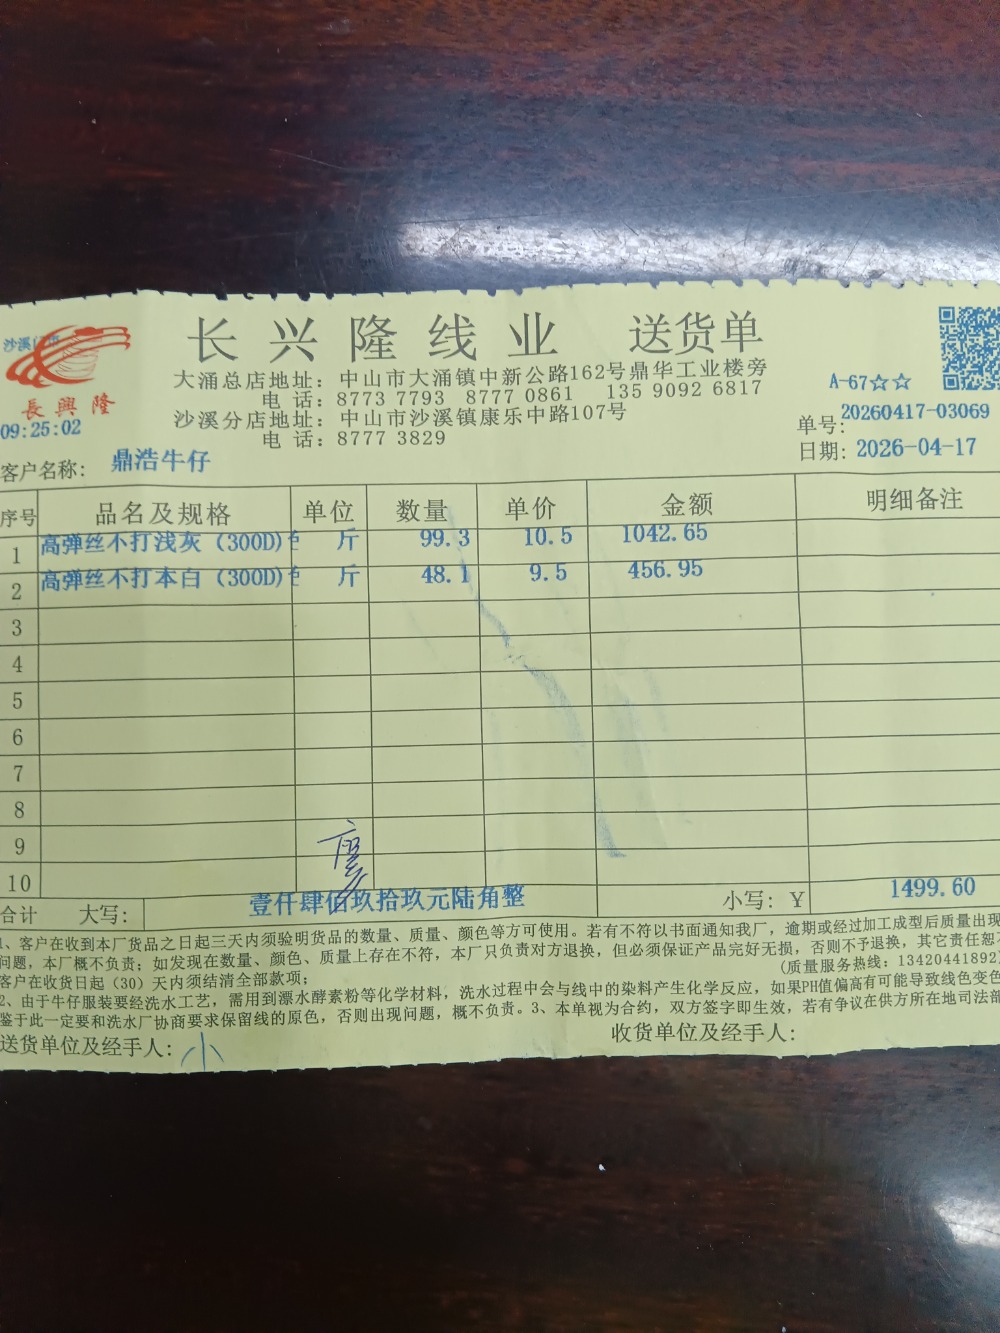 长兴隆线业 送货单
沙溪
長興隆
大涌总店地址：中山市大涌镇中新公路162号鼎华工业楼旁
电 话：8773 7793 8777 0861 135 9092 6817
沙溪分店地址：中山市沙溪镇康乐中路107号
电 话：8777 3829
A-67☆☆
单号：20260417-03069
日期：2026-04-17
09:25:02
客户名称：鼎浩牛仔
序号 品名及规格 单位 数量 单价 金额 明细备注
1 高弹丝不打浅灰（300D) 斤 99.3 10.5 1042.65
2 高弹丝不打本白（300D) 斤 48.1 9.5 456.95
3
4
5
6
7
8
9
10
合计 大写：壹仟肆佰玖拾玖元陆角整 小写：￥ 1499.60
1、客户在收到本厂货品之日起三天内须验明货品的数量、质量、颜色等方可使用。若有不符以书面通知我厂，逾期或经过加工成型后质量出现
问题，本厂概不负责；如发现在数量、颜色、质量上存在不符，本厂只负责对方退换，但必须保证产品完好无损，否则不予退换，其它责任恕不
客户在收货日起（30）天内须结清全部款项； (质量服务热线：13420441892)
2、由于牛仔服装要经洗水工艺，需用到漂水酵素粉等化学材料，洗水过程中会与线中的染料产生化学反应，如果PH值偏高有可能导致线色变色
鉴于此一定要和洗水厂协商要求保留线的原色，否则出现问题，概不负责。3、本单视为合约，双方签字即生效，若有争议在供方所在地司法部
送货单位及经手人：小 收货单位及经手人：